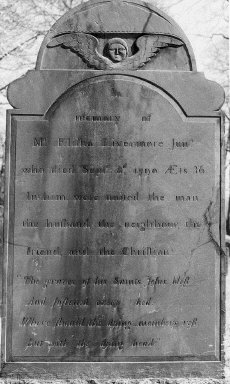 memory of
Mr Elisha Livermore Junr
who died Sepr 4th 1790 Æt 36
In whom were united the man
the husband the neighbour the
friend and the Christian
The graves of his Saints
And every bed
Where should the dying members rest
But with the dying head